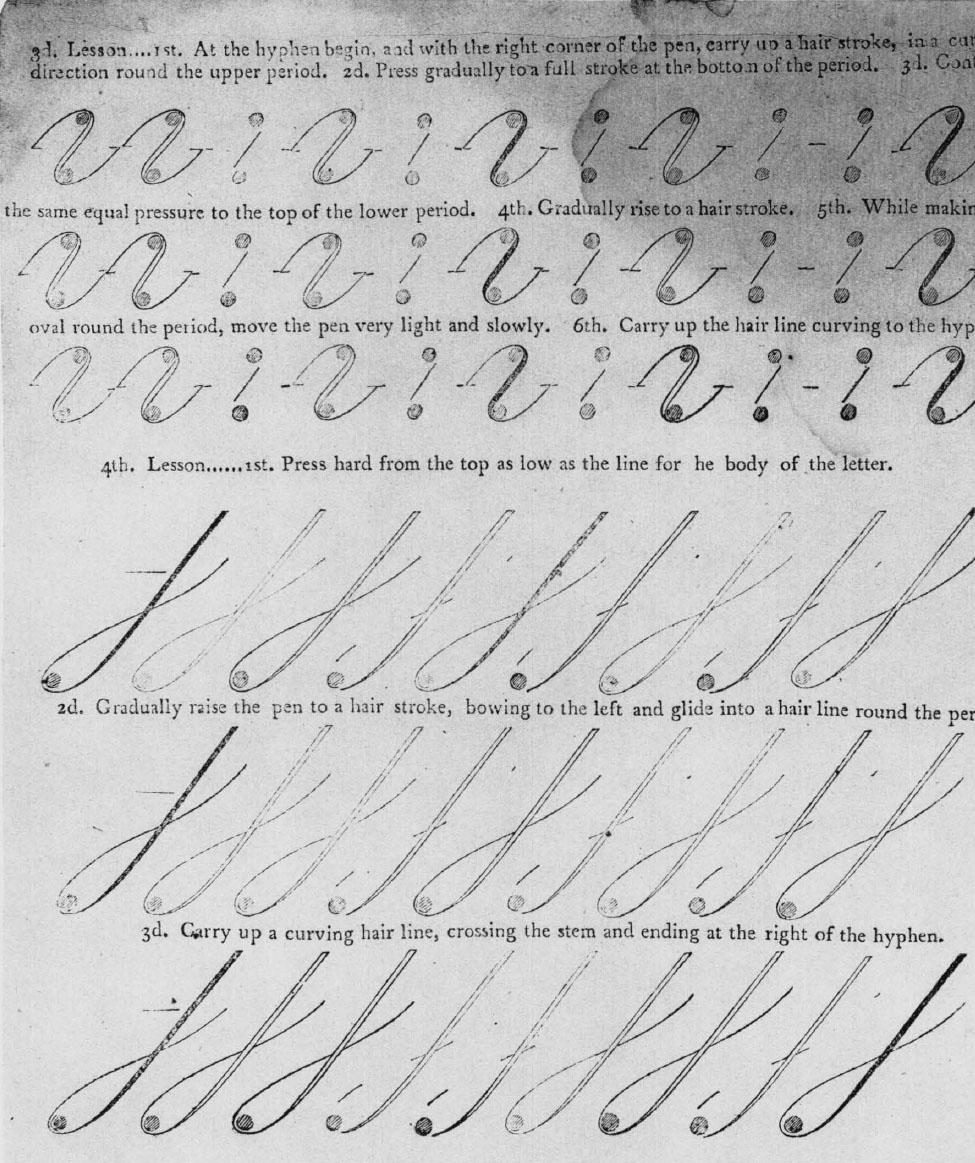 3d. Lesson....1st. At the hyphen begin, and with the right corner of the pen, carry up a hair stroke, in a cur
direction round the upper period. 2d. Press gradually to a full stroke at the bottom of the period. 3d. Cont
the same equal pressure to the top of the lower period. 4th. Gradually rise to a hair stroke. 5th. While makin
oval round the period, move the pen very light and slowly. 6th. Carry up the hair line curving to the hyp
4th. Lesson......1st. Press hard from the top as low as the line for he body of the letter.
2d. Gradually raise the pen to a hair stroke, bowing to the left and glide into a hair line round the per
3d. Carry up a curving hair line, crossing the stem and ending at the right of the hyphen.